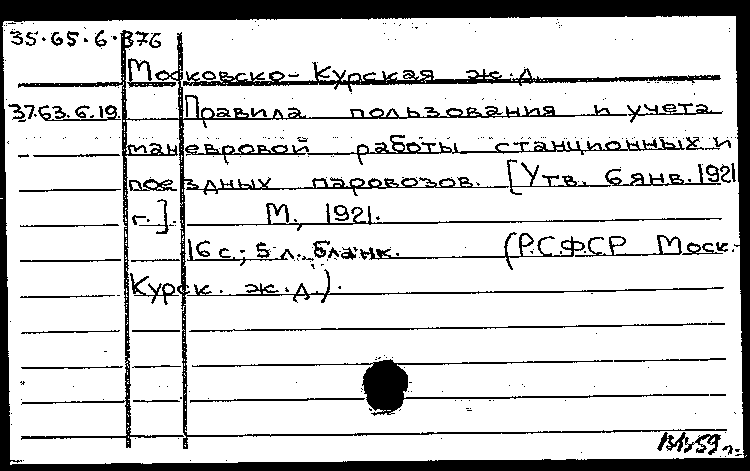 35.65.6.376
Московско-Курская ж.д.
37.63.6.19. Правила пользования и учета
маневровой работы станционных и
поездных паровозов. [Утв. 6 янв. 1921
г.]. М., 1921.
16 с.; 5 л. бланк. (Р.С.Ф.С.Р. Моск.-
Курск. ж.д.).